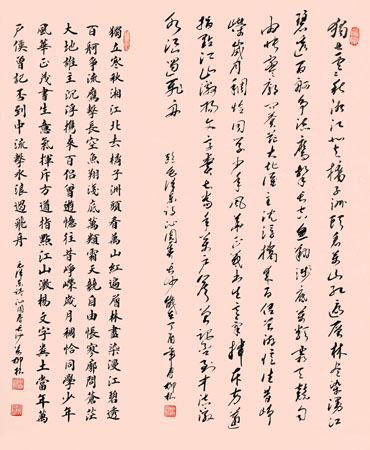 獨立寒秋湘江北去橘子洲頭看萬山紅遍層林盡染漫江
碧透百舸爭流鷹擊長空魚翔淺底萬類霜天競自
由悵寥廓問蒼茫大地誰主沉浮攜來百侶曾遊憶往昔崢
嶸歲月稠恰同學少年風華正茂書生意氣揮斥方遒
指點江山激揚文字糞土當年萬戶侯曾記否到中流激
水浪遏飛舟
錄毛澤東詩沁園春長沙歲在丁酉年春柳松
獨立寒秋湘江北去橘子洲頭看萬山紅遍層林盡染漫江碧透
百舸爭流鷹擊長空魚翔淺底萬類霜天競自由悵寥廓問蒼茫
大地誰主沉浮攜來百侶曾遊憶往昔崢嶸歲月稠恰同學少年
風華正茂書生意氣揮斥方遒指點江山激揚文字糞土當年萬
戶侯曾記否到中流擊水浪遏飛舟
毛澤東詩沁園春長沙柳松